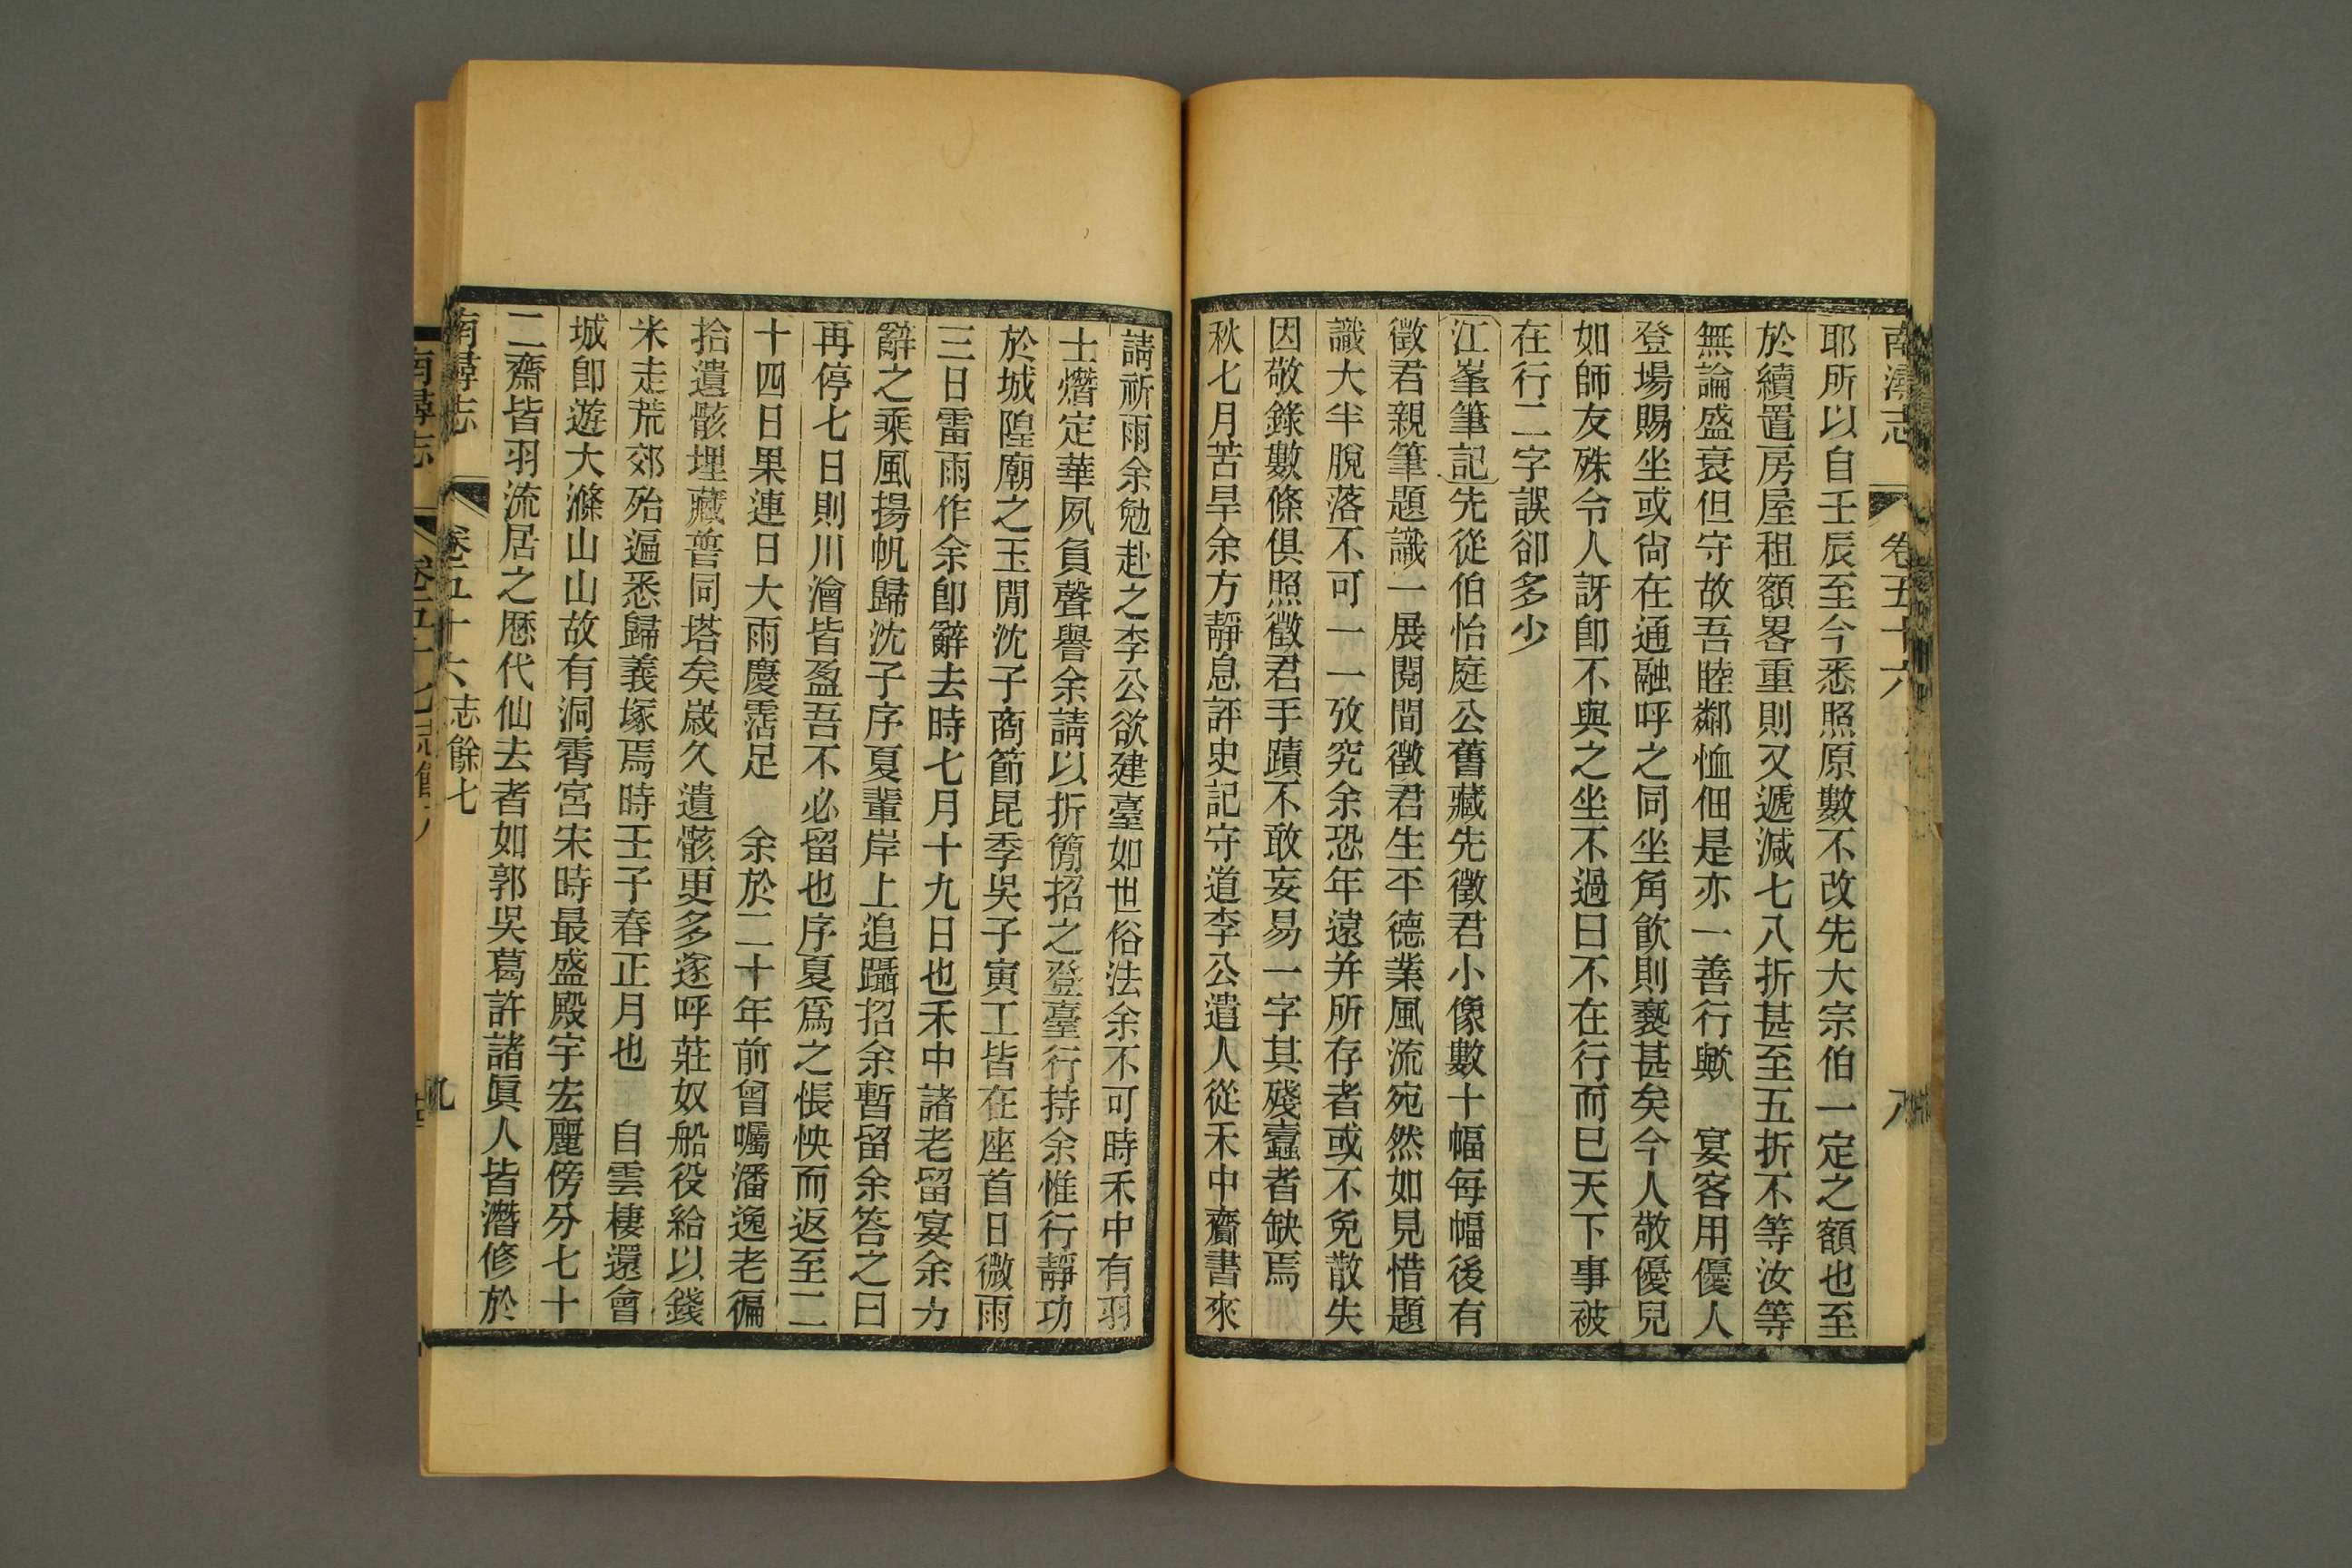 南潯志
卷五十六
八
耶所以自壬辰至今悉照原數不改先大宗伯一定之額也至
於續置房屋租額畧重則又遞減七八折甚至五折不等汝等
無論盛衰但守故吾睦鄰恤佃是亦一善行歟　宴客用優人
登場賜坐或尙在通融呼之同坐角飮則褻甚矣今人敬優兒
如師友殊令人訝卽不與之坐不過曰不在行而巳天下事被
在行二字誤卻多少
江峯筆記先從伯怡庭公舊藏先徵君小像數十幅每幅後有
徵君親筆題識一展閱間徵君生平德業風流宛然如見惜題
識大半脫落不可一一攷究余恐年遠并所存者或不免散失
因敬錄數條俱照徵君手蹟不敢妄易一字其殘蠹者缺焉
秋七月苦旱余方靜息評史記守道李公遣人從禾中齎書來
請祈雨余勉赴之李公欲建臺如世俗法余不可時禾中有羽
士熸定華夙負聲譽余請以折簡招之登臺行持余惟行靜功
於城隍廟之玉閒沈子商節昆季吳子寅工皆在座首日微雨
三日雷雨作余卽辭去時七月十九日也禾中諸老留宴余力
辭之乘風揚帆歸沈子序夏輩岸上追躡招余暫留余答之曰
再停七日則川澮皆盈吾不必留也序夏爲之悵怏而返至二
十四日果連日大雨慶霑足　余於二十年前曾囑潘逸老徧
拾遺骸埋藏誓同塔矣歲久遺骸更多遂呼莊奴船役給以錢
米走荒郊殆遍悉歸義塚焉時壬子春正月也　自雲棲還會
城卽遊大滌山山故有洞霄宮宋時最盛殿宇宏麗傍分七十
二齋皆羽流居之歷代仙去者如郭吳葛許諸眞人皆潛修於
南潯志
卷五十六 志餘七
九
南潯志
卷五十七 志餘八